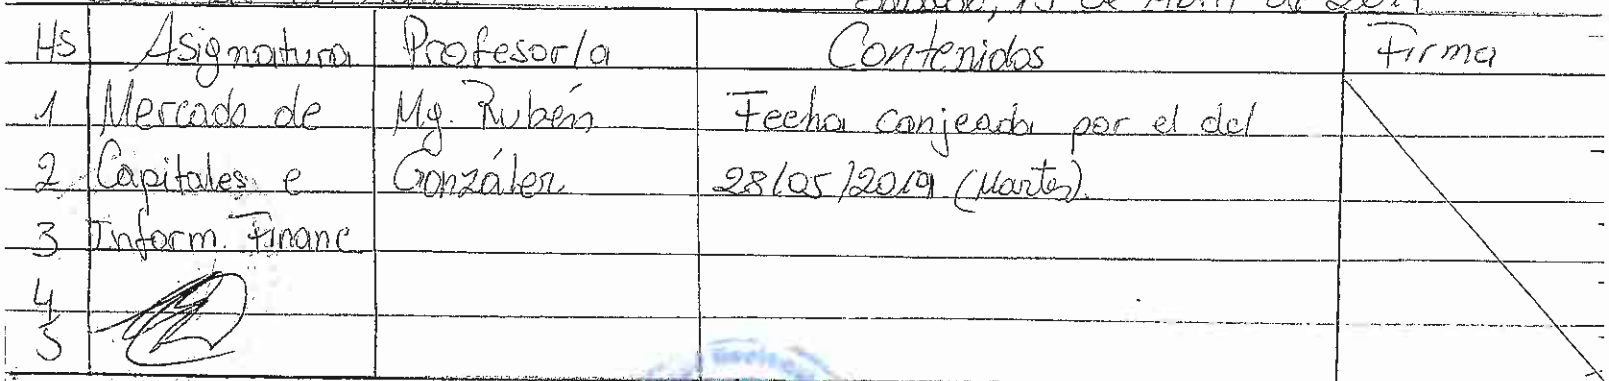 Sábado, 13 de Abril de 2019
Hs Asignatura Profesor/a Contenidos Firma
1 Mercado de Mg. Rubén Fecha canjeada por el del
2 Capitales e González 28/05/2019 (Martes).
3 Inform. Financ
4
5